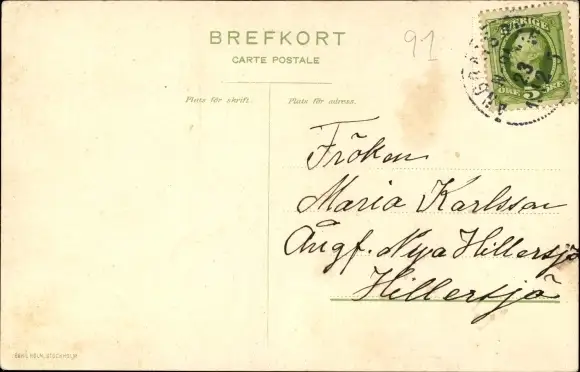 BREFKORT
CARTE POSTALE
91
SVERIGE
5
Plats för skrift.
Plats för adress.
Fröken
Maria Karlsson
Ångf. Nya Hillersjö
Hillersjö
STOCKHOLM